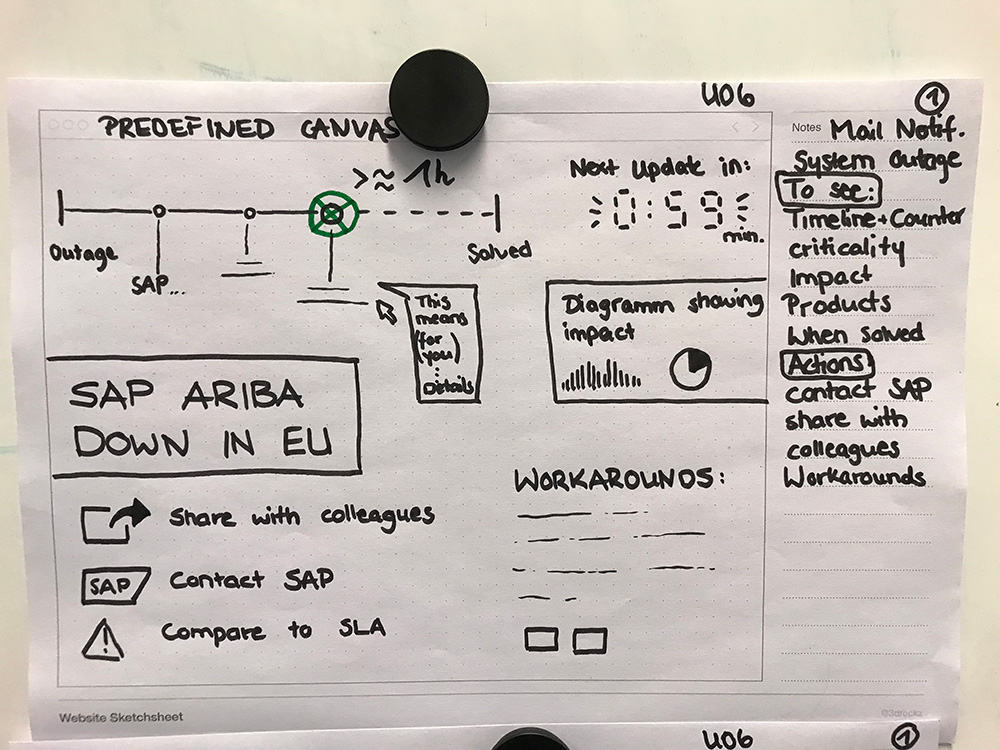 U06
1
PREDEFINED CANVAS
Notes Mail Notif.
System Outage
To see:
Timeline+Counter
criticality
Impact
Products
When solved
Actions
contact SAP
share with
colleagues
Workarounds
>≈ 1h
Outage
SAP...
Solved
Next Update in:
0:59
min.
This
means
(for
you)
:
Details
Diagramm showing
impact
SAP ARIBA
DOWN IN EU
Share with colleagues
SAP Contact SAP
Compare to SLA
WORKAROUNDS:
Website Sketchsheet
U06
1